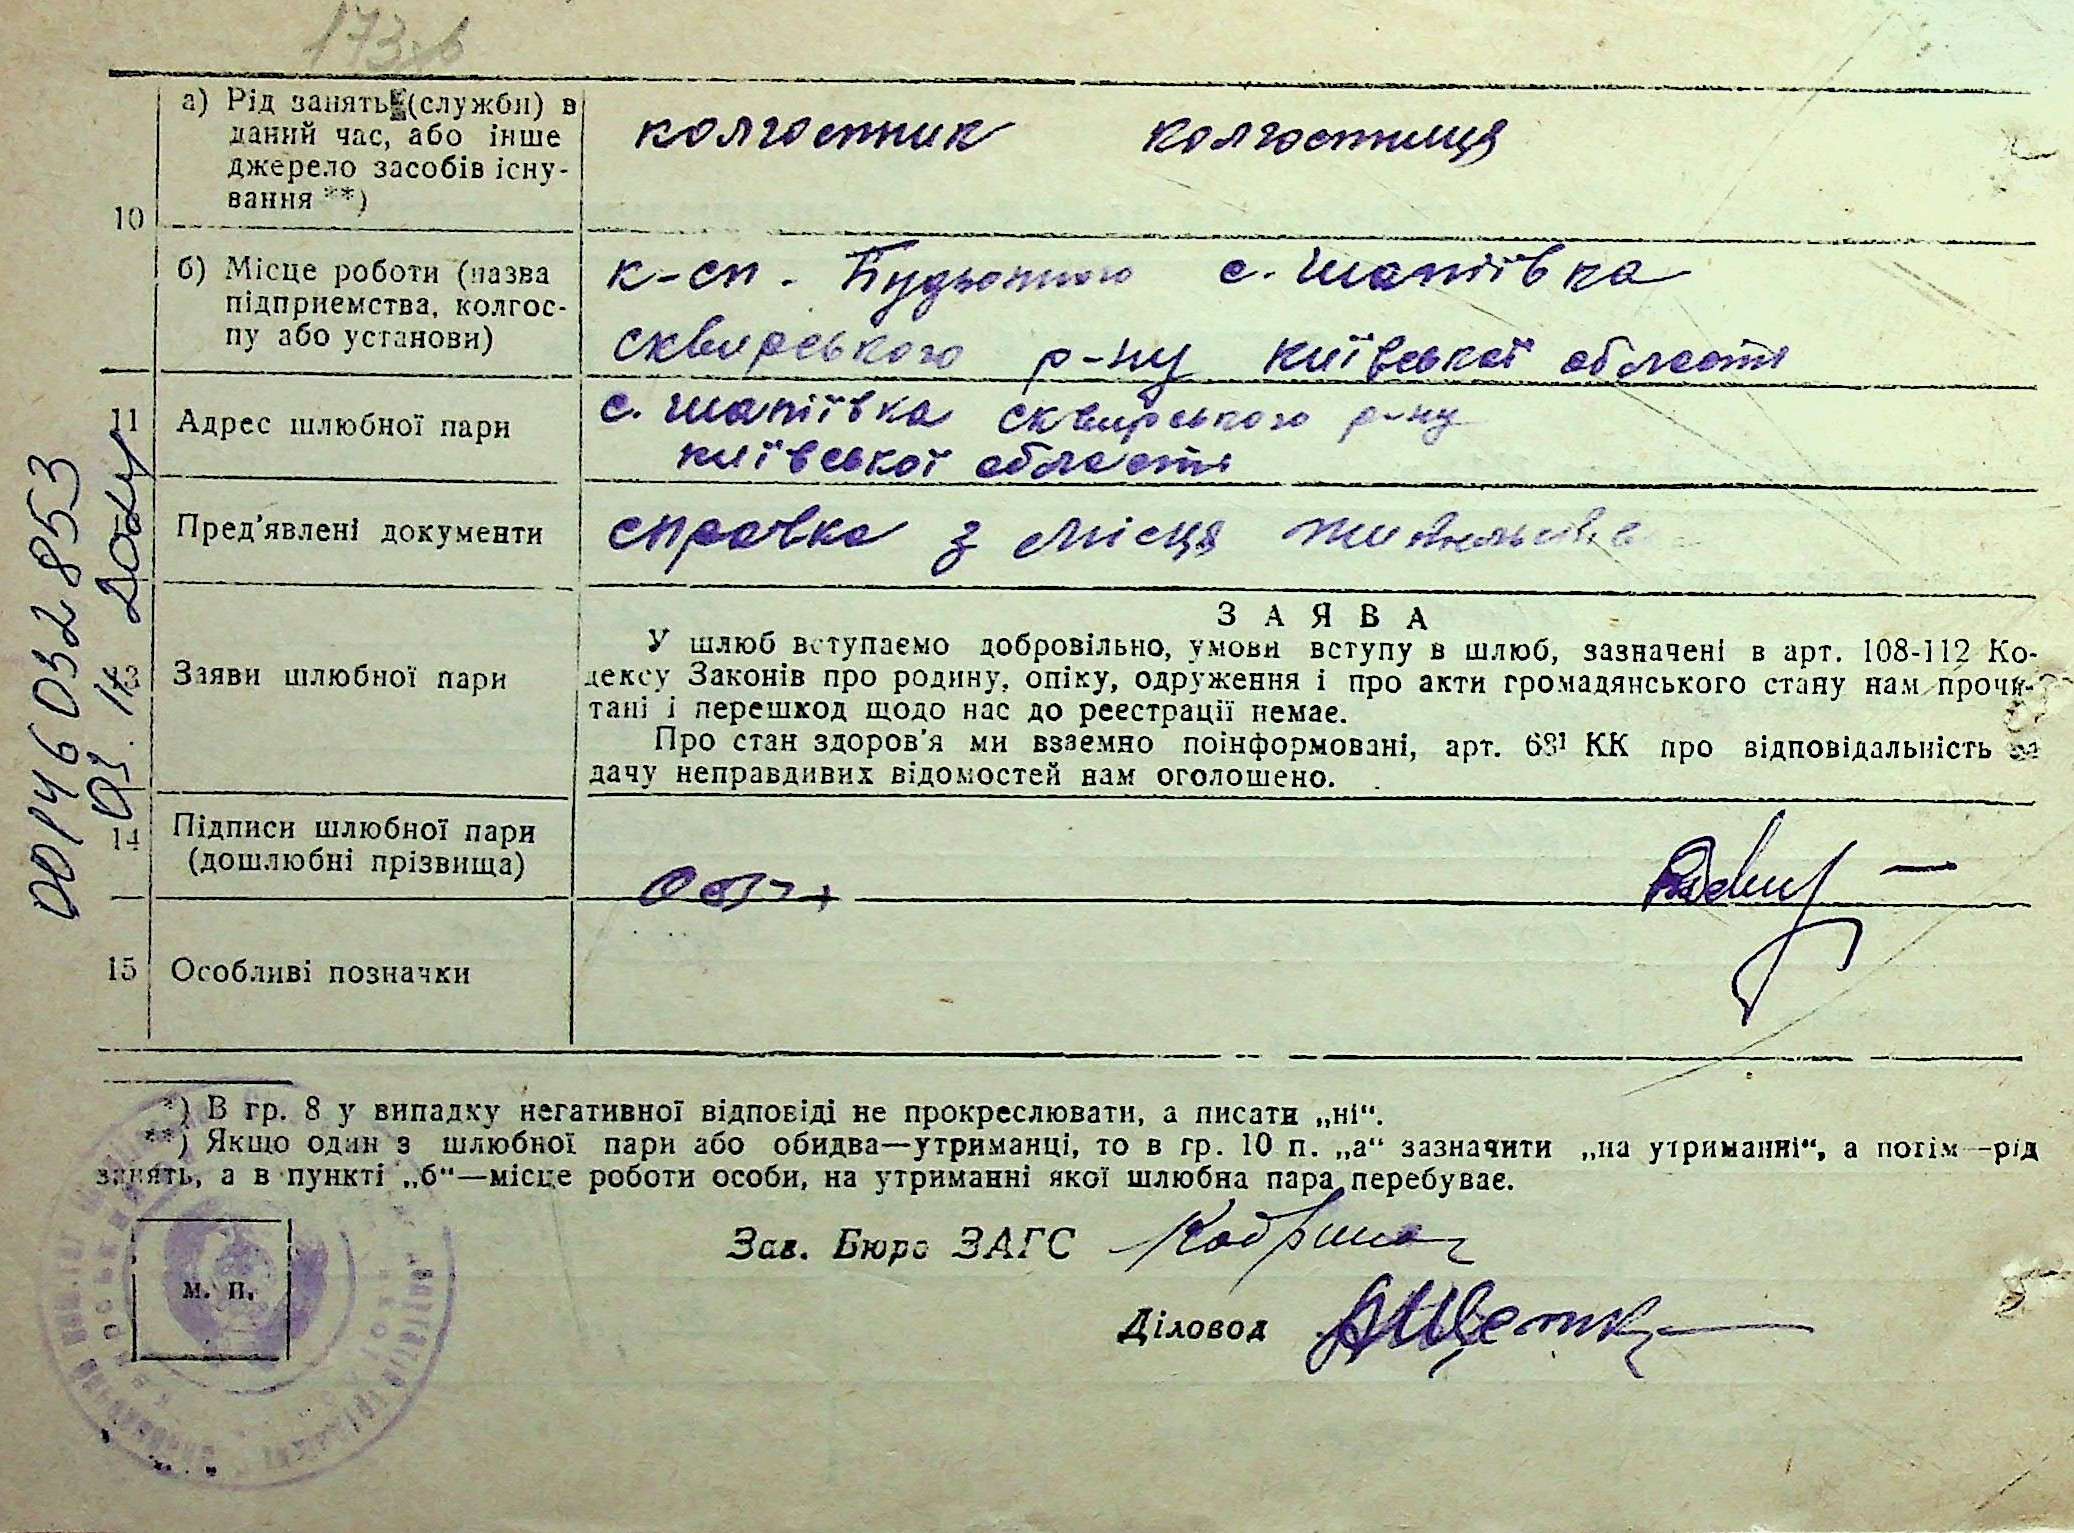 173зв
10
а) Рід занять (служби) в
даний час, або інше
джерело засобів існу-
вання **)
колгоспник колгоспниця
б) Місце роботи (назва
підприемства, колгос-
пу або установи)
к-сп. Будьоного с. Шапіївка
сквирського р-ну київської області
11
Адрес шлюбної пари
с. Шапіївка сквирського р-ну
київської області
Пред'явлені документи
справка з місця
13
Заяви шлюбної пари
ЗАЯВА
У шлюб вступаємо добровільно, умови вступу в шлюб, зазначені в арт. 108-112 Ко-
дексу Законів про родину, опіку, одруження і про акти громадянського стану нам прочи-
тані і перешкод щодо нас до реестрації немае.
Про стан здоров'я ми взаемно поінформовані, арт. 68¹ КК про відповідальність за
дачу неправдивих відомостей нам оголошено.
14
Підписи шлюбної пари
(дошлюбні прізвища)
15
Особливі позначки
00146 032 853
*) В гр. 8 у випадку негативної відповіді не прокреслювати, а писати „ні“.
**) Якщо один з шлюбної пари або обидва—утриманці, то в гр. 10 п. „а“ зазначити „на утриманні“, а потім—рід
занять, а в пункті „б“—місце роботи особи, на утриманні якої шлюбна пара перебувае.
Зав. Бюро ЗАГС
Діловод
М. П.